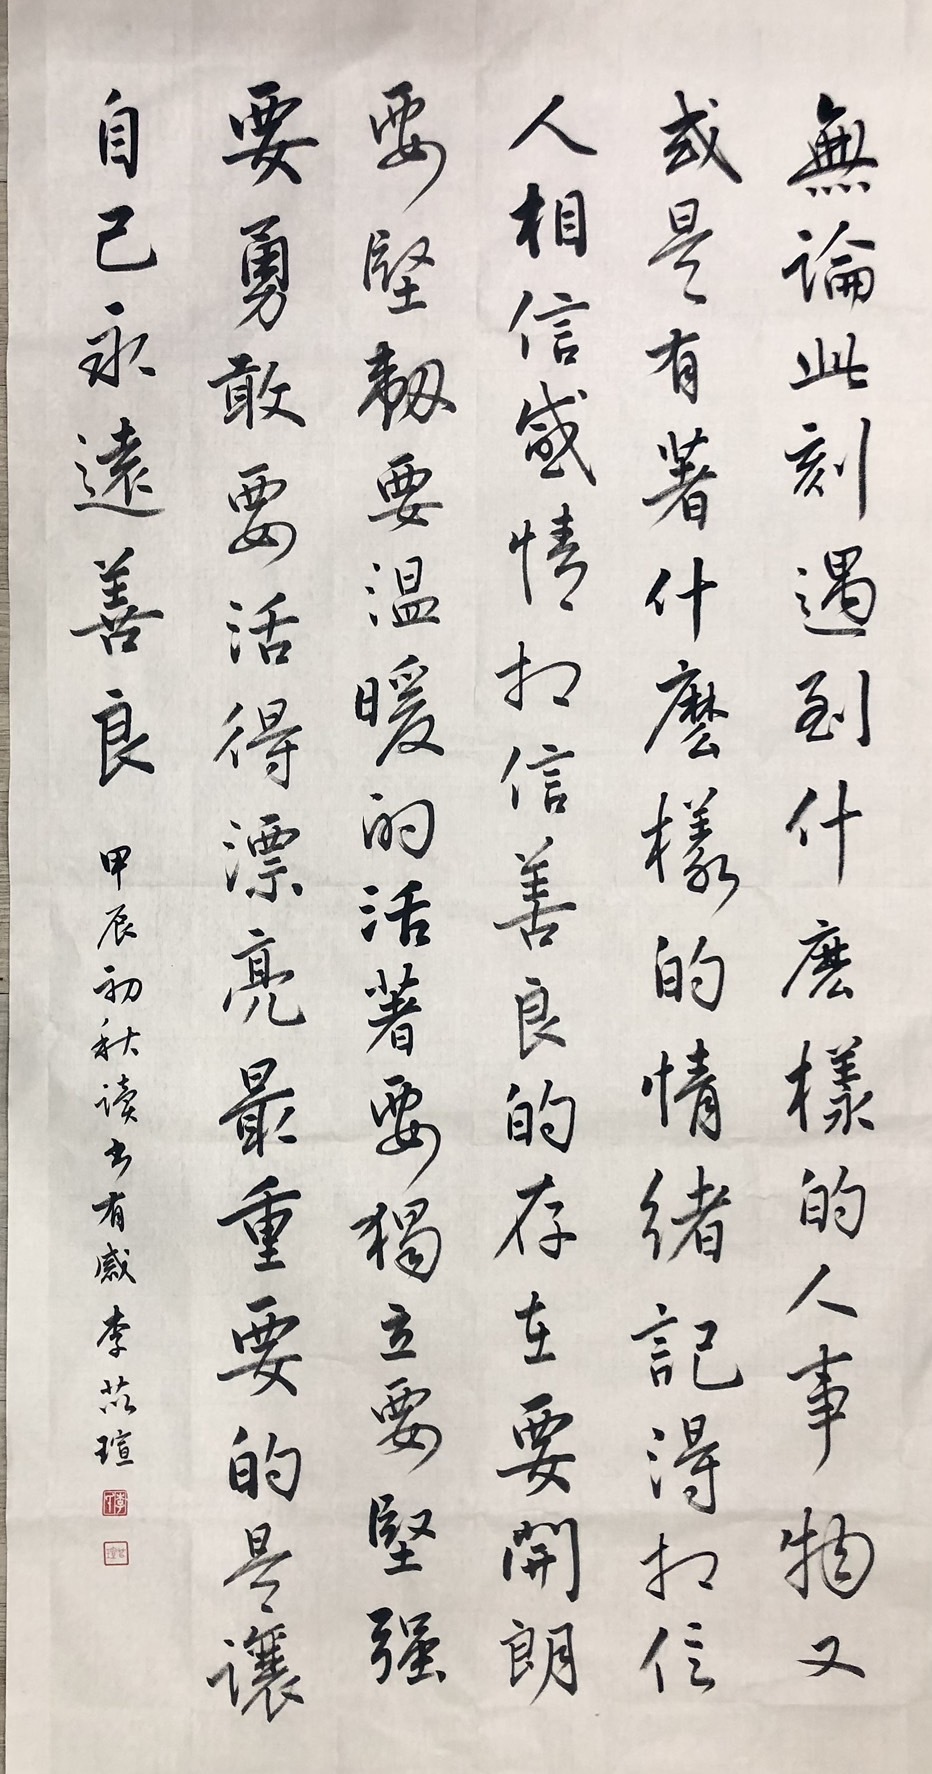 無論此刻遇到什麽樣的人事物又
或是有著什麽樣的情绪記得相信
人相信感情相信善良的存在要開朗
要堅韌要温暖的活著要獨立要堅强
要勇敢要活得漂亮最重要的是讓
自己永遠善良
甲辰初秋读书有感李苡瑄